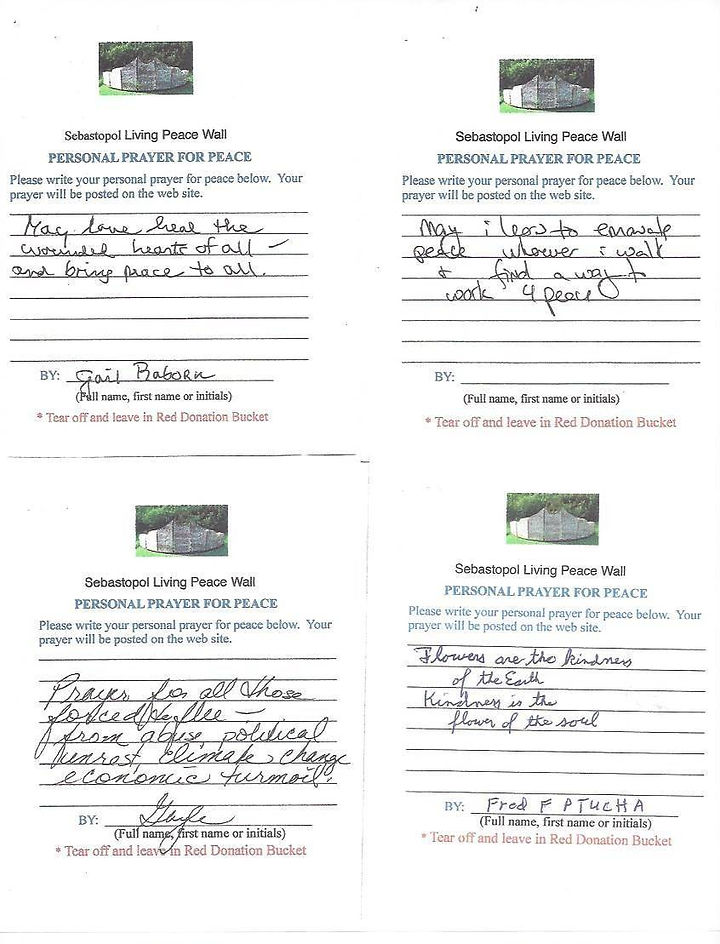 Sebastopol Living Peace Wall
PERSONAL PRAYER FOR PEACE
Please write your personal prayer for peace below. Your
prayer will be posted on the web site.
May love heal the
wounded hearts of all –
and bring peace to all.
BY: Gail Raborn
(Full name, first name or initials)
* Tear off and leave in Red Donation Bucket
Sebastopol Living Peace Wall
PERSONAL PRAYER FOR PEACE
Please write your personal prayer for peace below. Your
prayer will be posted on the web site.
May i to
peace i walk
& find a way to
work 4 peace
BY:
(Full name, first name or initials)
* Tear off and leave in Red Donation Bucket
Sebastopol Living Peace Wall
PERSONAL PRAYER FOR PEACE
Please write your personal prayer for peace below. Your
prayer will be posted on the web site.
Prayers for all those
forced to flee –
from abuse, political
unrest, climate change
economic turmoil.
BY: Gayle
(Full name, first name or initials)
* Tear off and leave in Red Donation Bucket
Sebastopol Living Peace Wall
PERSONAL PRAYER FOR PEACE
Please write your personal prayer for peace below. Your
prayer will be posted on the web site.
Flowers are the kindness
of the Earth
Kindness is the
flower of the soul
BY: Fred F PTUCHA
(Full name, first name or initials)
* Tear off and leave in Red Donation Bucket